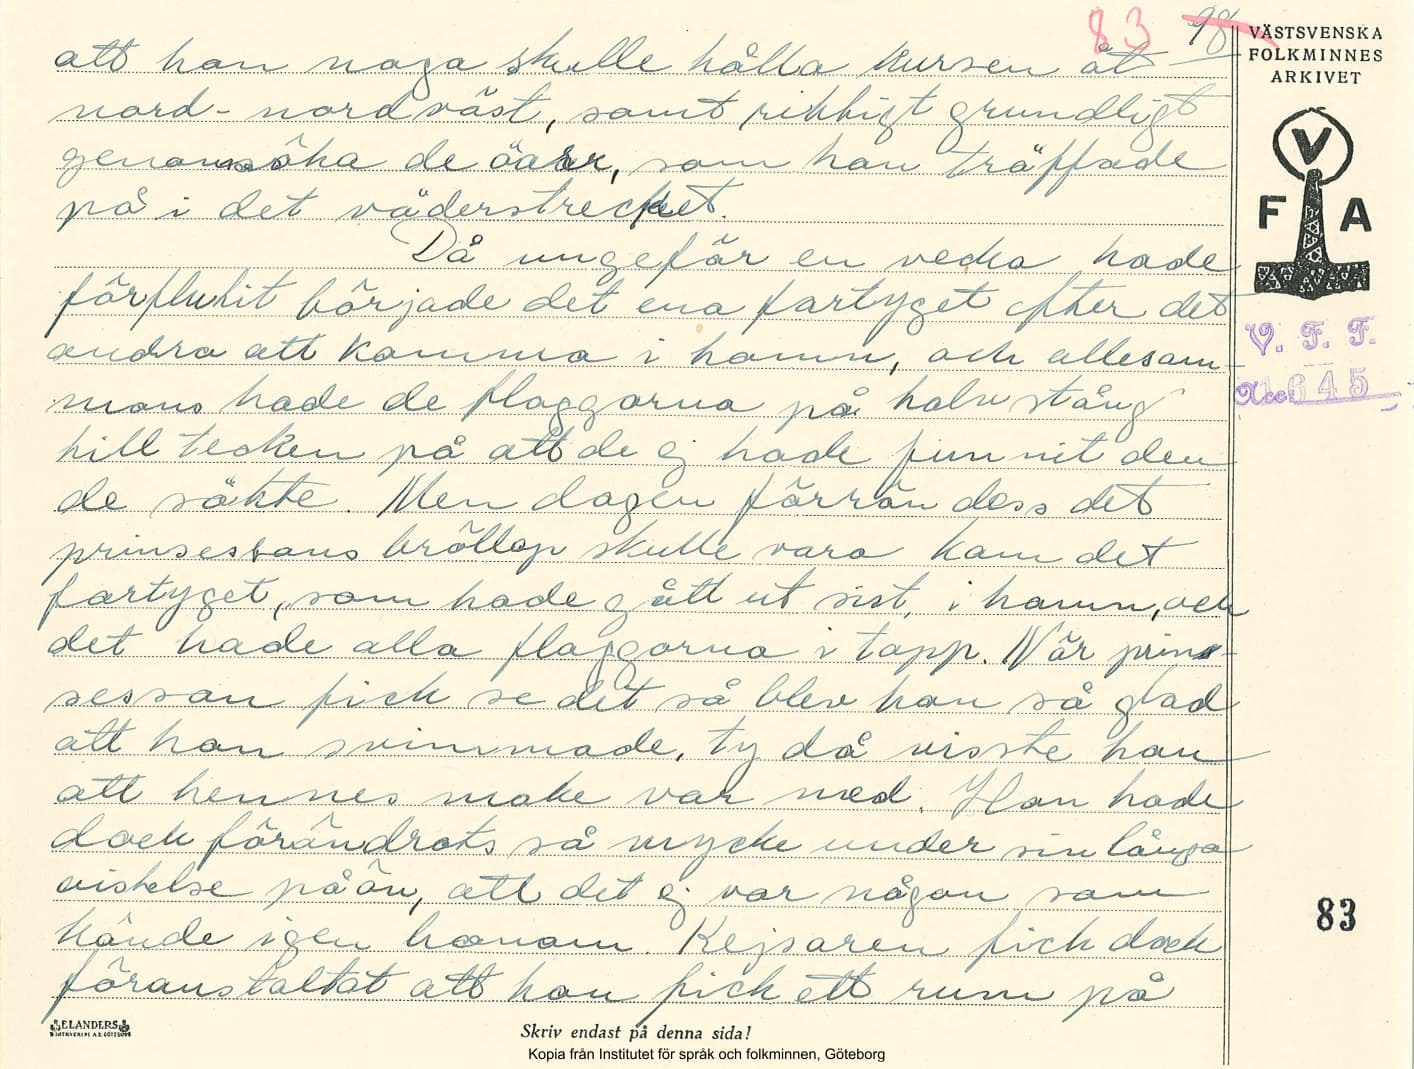 83 98
VÄSTSVENSKA
FOLKMINNES
ARKIVET
V
F A
V. F. F.
Acc 1645
att han noga skulle hålla kursen åt
nord-nordväst, samt riktigt grundligt
genomsöka de öaar, som han träffade
på i det väderstrecket.
Då ungefär en vecka hade
förflutit började det ena fartyget efter det
andra att komma i hamn, och allesam-
mans hade de flaggorna på halv stång
till tecken på att de ej hade funnit den
de sökte. Men dagen förrän dess det
prinsessans bröllop skulle vara kom det
fartyget, som hade gått ut sist, i hamn, och
det hade alla flaggorna i topp. När prin-
sessan fick se det så blev hon så glad
att hon svimmade, ty då visste hon
att hennes make var med. Han hade
dock förändrats så mycke under sin långa
vistelse på ön, att det ej var någon som
kände igen honom. Kejsaren fick dock
föranstaltat att han fick ett rum på
83
ELANDERS
Skriv endast på denna sida!
Kopia från Institutet för språk och folkminnen, Göteborg